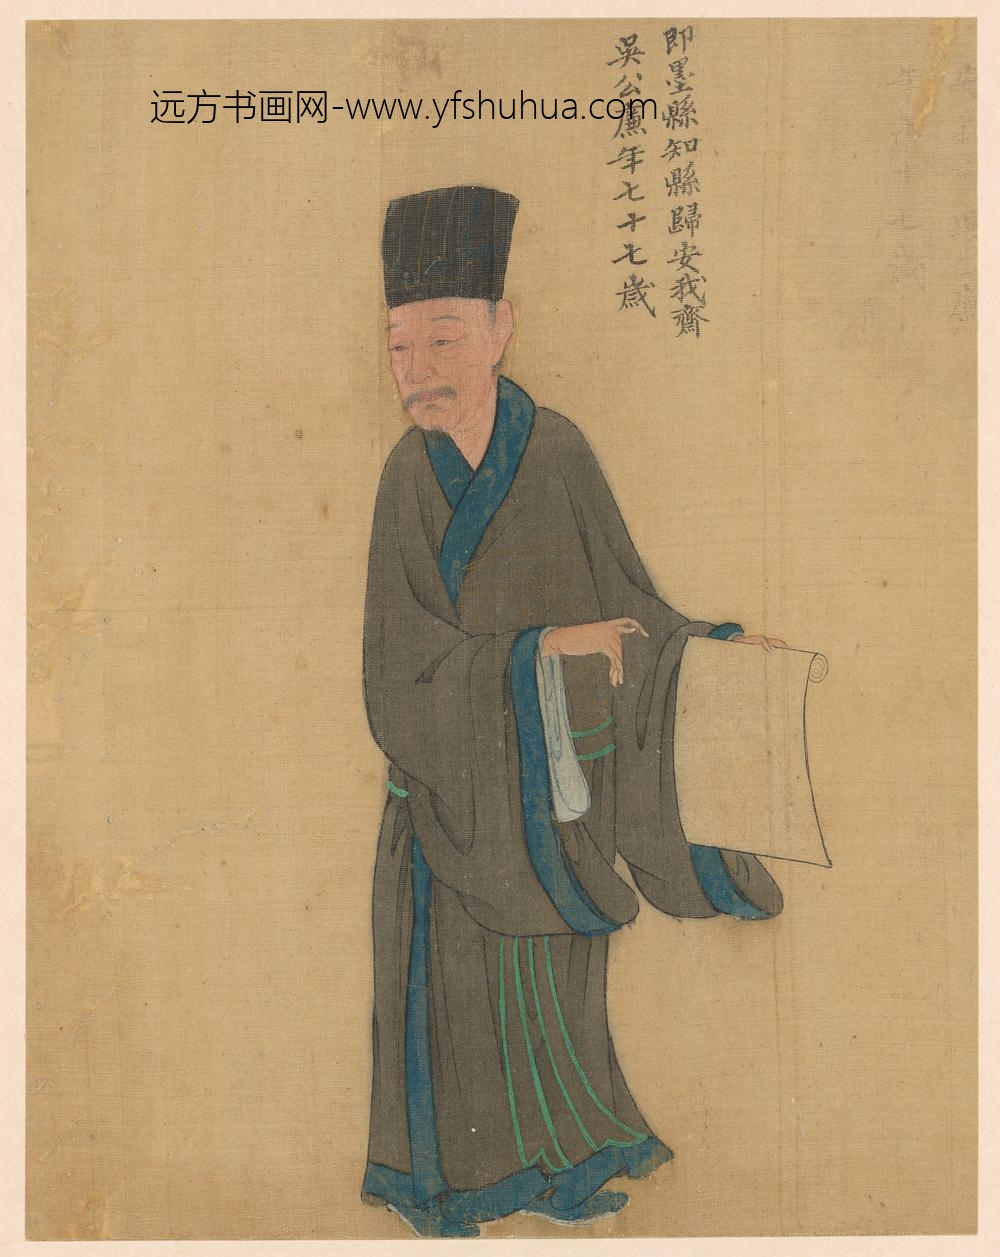 即墨縣知縣歸安我齋
吳公廉年七十七歲
远方书画网-www.yfshuhua.com